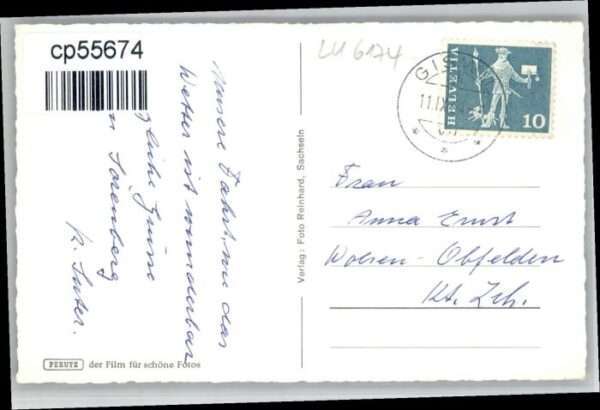 cp55674
LU 6174
GIS
11.IX
HELVETIA
10
Unsere Fahrt und das
Wetter ist wunderbar
liche Grüsse
Sörenberg
K. Suter.
Verlag: Foto Reinhard, Sachseln
Frau
Anna Ernst
Wolsen-Obfelden
Kt. Zch.
PERUTZ der Film für schöne Fotos